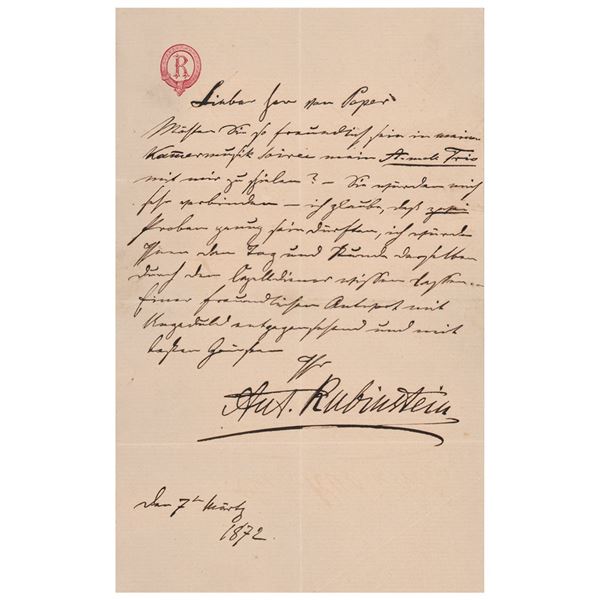 R
Lieber Herr von Poper
Möchten Sie so freundlich sein in meiner
Kammermusik Soiree mein A-moll Trio
mit mir zu spielen? – Sie würden mich
sehr verbinden – ich glaube, daß zwei
Proben genug sein dürften, ich würde
Ihnen den Tag und Stunde derselben
durch den wissen lassen
Einer freundlichen Antwort mit
Ungeduld entgegensehend und mit
besten Grüssen
Ihr
Ant. Rubinstein
Den 7ten März
1872.